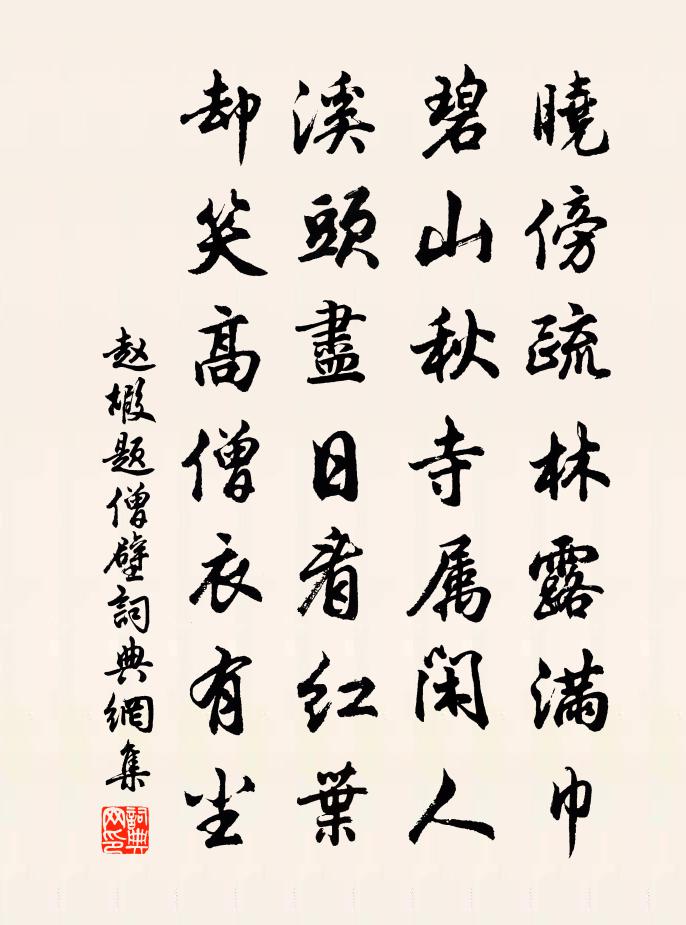 曉傍疏林露滿巾
碧山秋寺属閑人
溪頭盡日看紅葉
却笑高僧衣有尘
赵嘏题僧壁詞典網集
詞典网印